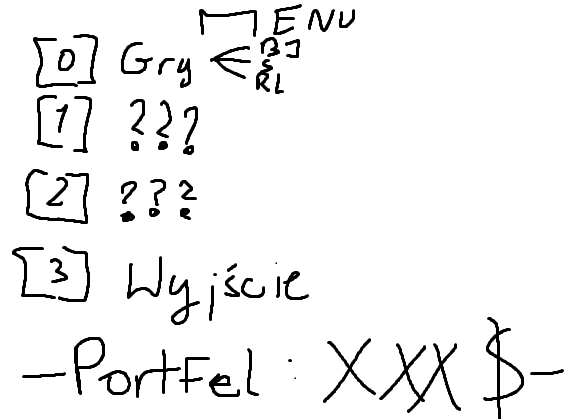 MENU
[0] Gry BJ
S
RL
[1] ???
[2] ???
[3] Wyjście
-Portfel: XXX $-